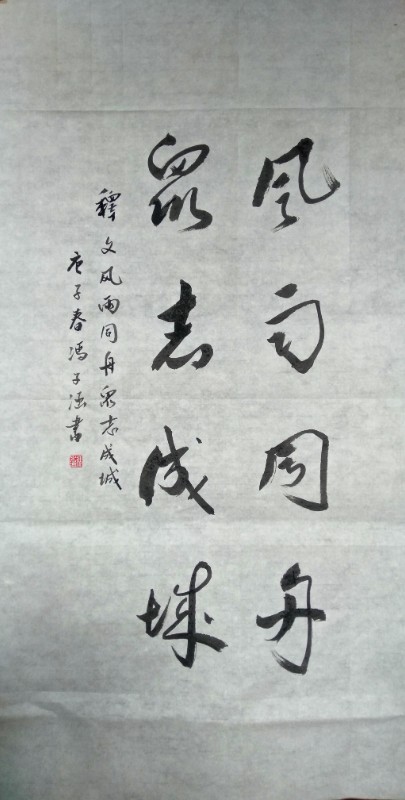 風雨同舟
眾志成城
釋文風雨同舟眾志成城
庚子春馮子涵書